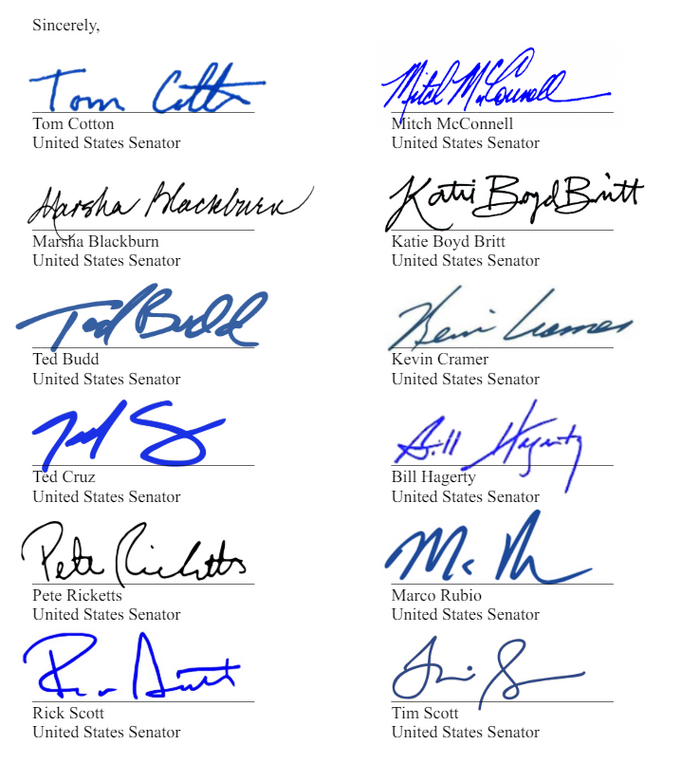 Sincerely,
Tom Cotton
Mitch McConnell
Tom Cotton
Mitch McConnell
United States Senator
United States Senator
Marsha Blackburn
Katie Boyd Britt
Marsha Blackburn
Katie Boyd Britt
United States Senator
United States Senator
Ted Budd
Kevin Cramer
Ted Budd
Kevin Cramer
United States Senator
United States Senator
Ted Cruz
Bill Hagerty
United States Senator
United States Senator
Bill Hagerty
Pete Ricketts
Pete Ricketts
Marco Rubio
United States Senator
United States Senator
Rick Scott
Tim Scott
United States Senator
United States Senator